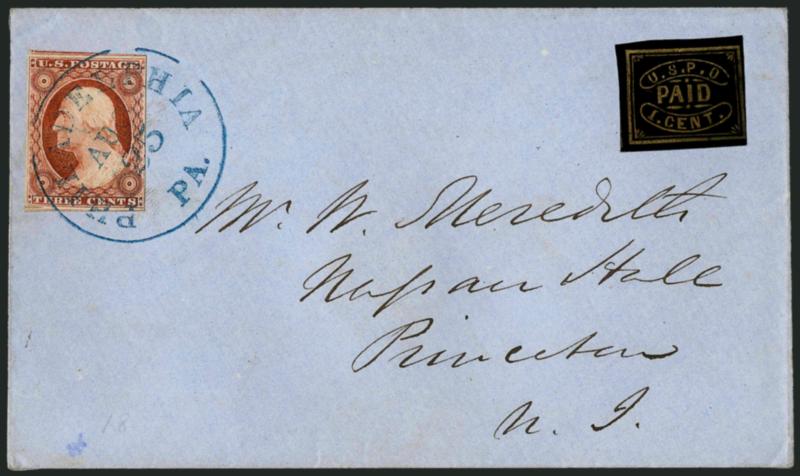 U.S. POSTAGE
THREE CENTS
PHILADELPHIA
PA.
U.S.P.O
PAID
1.CENT.
Mr. W. Meredith
Nassau Hall
Princeton
N. J.
18